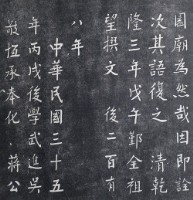 國廟為然哉因即詮
次其語復之 清乾
隆三年戊午鄞全祖
望撰文 後二百有
八年
中華民國三十五
年丙戌後學武進吳
敬恆承奉化 蔣公